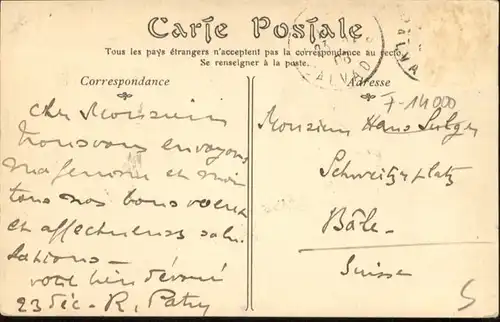 Carte Postale
Tous les pays étrangers n'acceptent pas la correspondance au recto.
Se renseigner à la poste.
Correspondance
Adresse
F-14000
Cher Monsieur
nous vous envoyons
ma femme et moi
tous nos bons voeux
et affectueuses salu
tations –
votre bien dévoué
23 déc – R. Patry
Monsieur Hans Sulger
Schweitzerplatz
Bâle –
Suisse
5